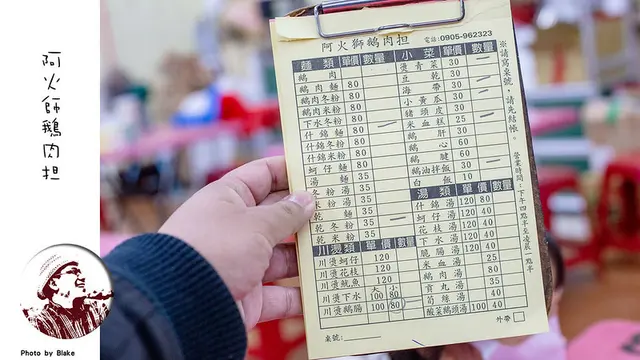 阿火師鵝肉担
Photo by Blake
阿火獅鵝肉担
電話:0905-962323
麵類 單價 數量
鵝肉
鵝肉麵 80
鵝肉冬粉 80
鵝肉米粉 80
下水冬粉 80
什錦麵 80
什錦冬粉 80
什錦米粉 80
蚵仔麵 80
湯麵 35
冬粉湯 35
米粉湯 35
乾麵 35
乾冬粉 35
乾米粉 35
川燙類 單價 數量
川燙蚵仔 120
川燙花枝 120
川燙魷魚 120
川燙下水 大100 小80
川燙鵝腸 100 80
小菜 單價 數量
燙青菜 30
豆乾 30
海帶 30
小黃瓜 30
豬頭皮 30
米血糕 25
鵝肝 30
鵝心 60
鵝腱 60
鵝油拌飯 30
白飯 10
湯類 單價 數量
什錦湯 120 80
蚵仔湯 80 40
花枝湯 120 40
下水湯 120 40
脆腸湯 40
米血湯 25
貢丸湯 40
筍絲湯 40
酸菜鵝頭湯 100 40
※請寫桌號,請先結帳。
營業時間:下午四點半至凌晨一點半
桌號:
外帶